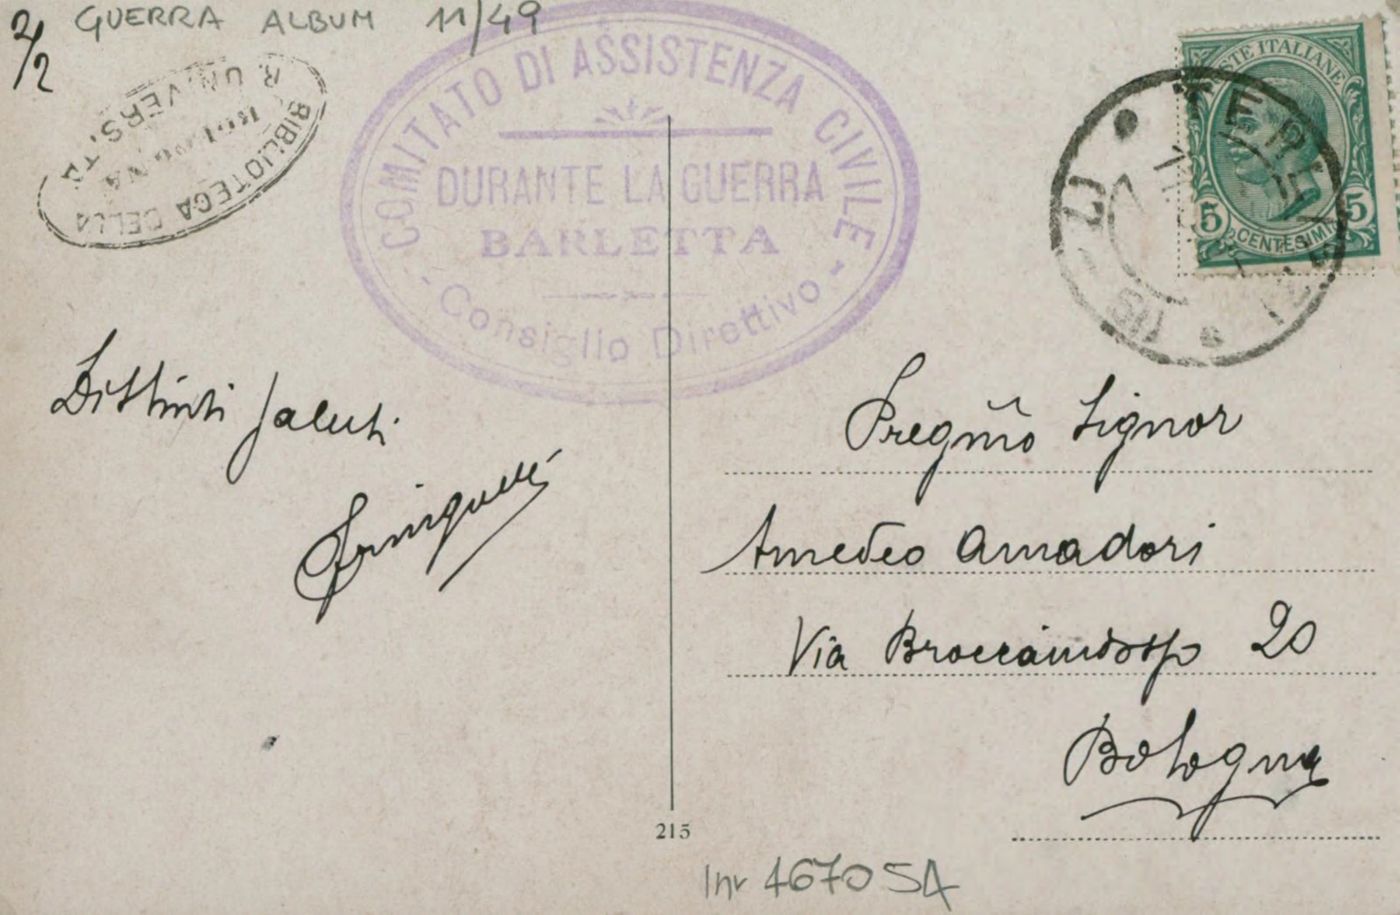 2/2 GUERRA ALBUM 11/49
BIBLIOTECA DELLA
R. UNIVERSITÀ
BOLOGNA
COMITATO DI ASSISTENZA CIVILE
DURANTE LA GUERRA
BARLETTA
- Consiglio Direttivo -
POSTE ITALIANE
5 CENTESIMI 5
Distinti saluti
Pregmo Signor
Amedeo Amadori
Via Broccaindosso 20
Bologna
215
Inv 46705A